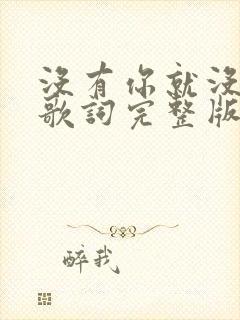 沒有你就沒
歌詞完整版
醉我